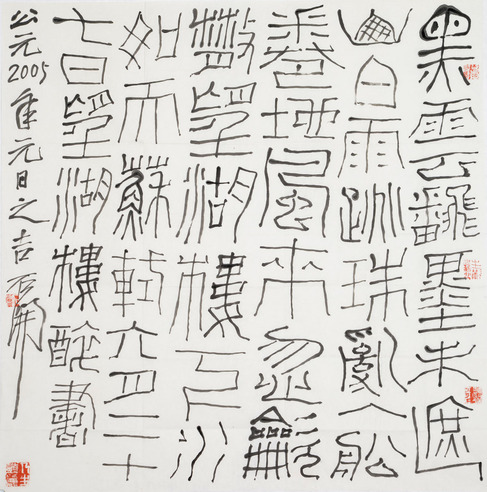 黑雲飜墨未遮
山白雨跳珠亂入船
卷地風來忽龡
散望湖樓下水
如天蘇軾六月二十
七日望湖樓醉書
公元2005年元日之吉石開